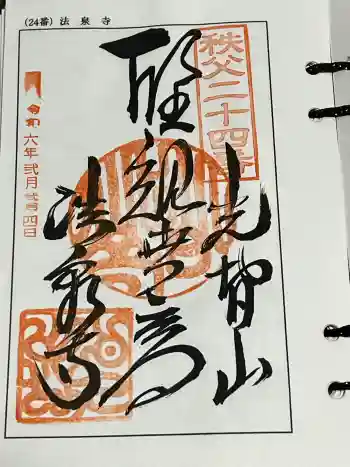 (24番) 法泉寺
秩父二十四番
光智山
聖観世音
法泉寺
令和六年弐月弐拾四日